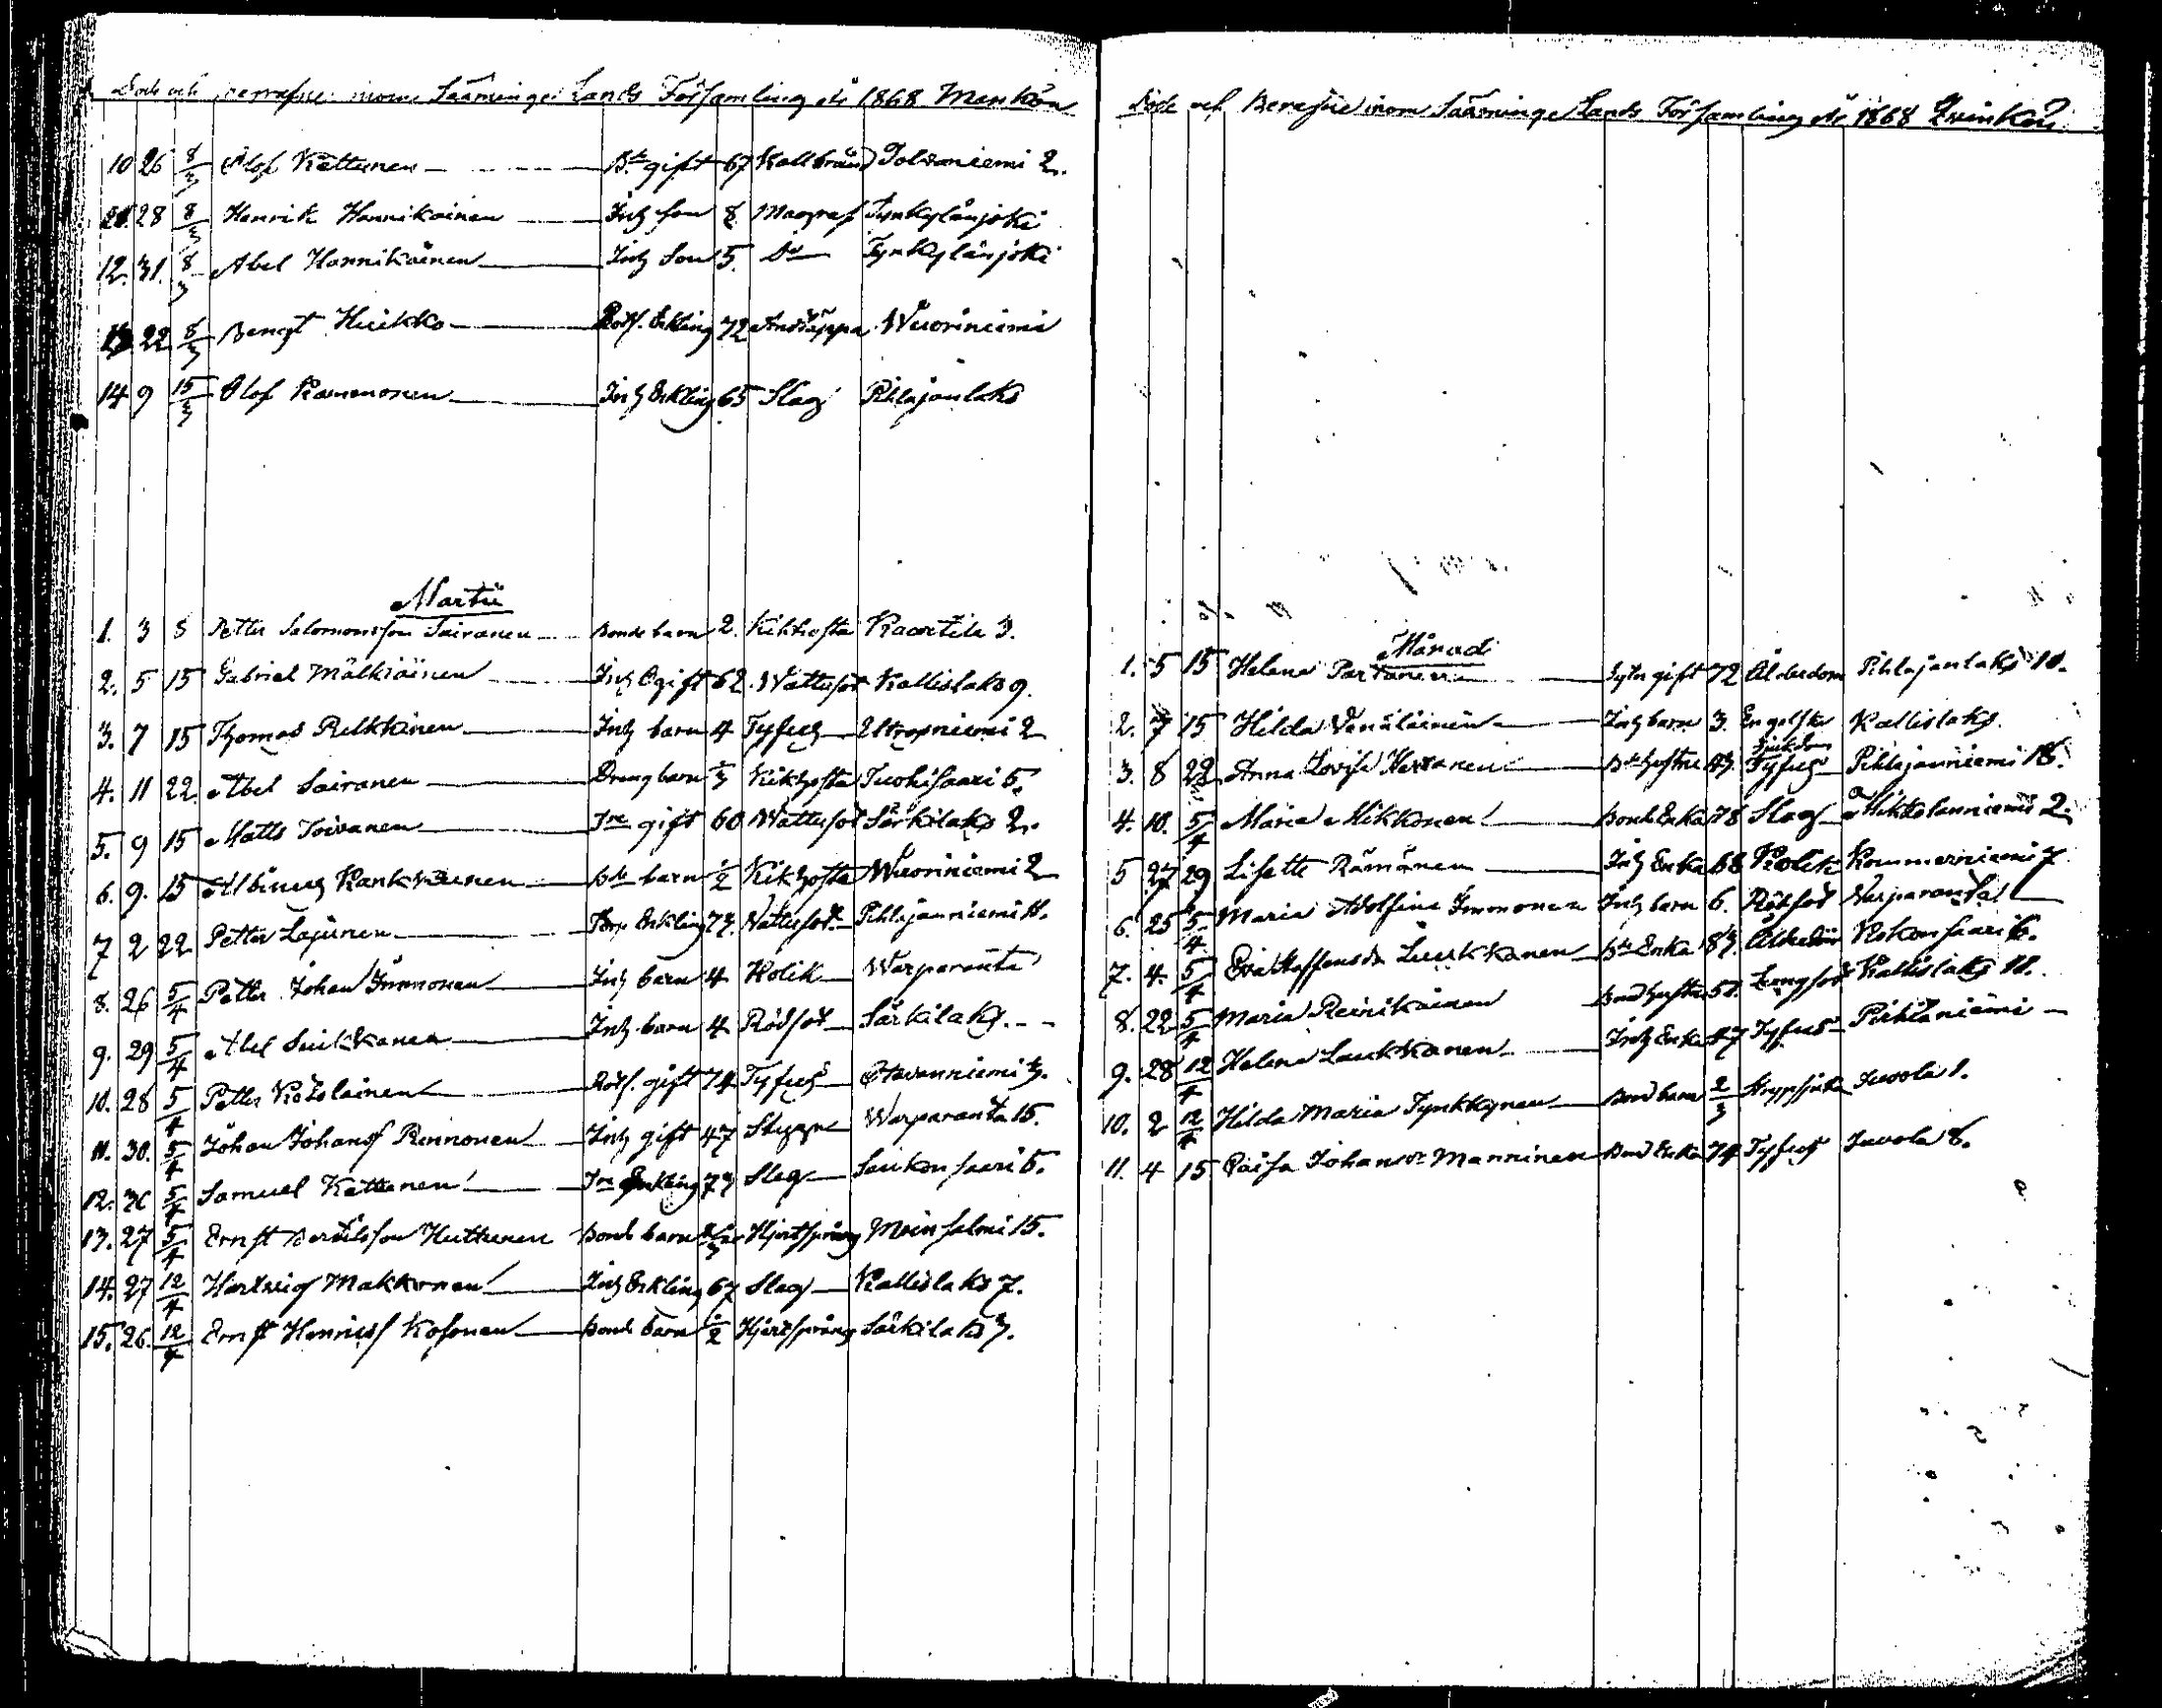 Döde och Begrafne inom Sääminge Lands Församling år 1868 Menkön
10 26 8/3 Olof Kettunen Bde gift 67 Kallbrand Tolvaniemi 2.
11 28 8/3 Henrik Hannikainen Inh son 8. Magref Tynkylänjoki
12. 31. 8/3 Abel Hannikainen Inh Son 5. do Tynkylänjoki
13. 22 8/3 Bengt Huikko Rotf. Enkling 72 Andtäppa Wuoriniemi
14 9 15/3 Olof Rammonen Inh Enkling 65 Slag Pihlajanlaks
Martii
1. 3 8 Petter Salomonsson Sairanen Bonde barn 2. Kikhosta Kaartila 3.
2. 5 15 Gabriel Mälkiäinen Inh Ogift 62. Wattusot Kallislaks 9.
3. 7 15 Thomas Pelkkinen Inh barn 4 Tyfus Utropniemi 2
4. 11 22. Abel Sairanen Dreng barn 1/3 Kikhosta Tuohisaari 5.
5. 9 15 Matts Toivanen Tre gift 60 Wattusot Särkilaks 2.
6. 9. 15 Albinus Kankkunen Bde barn 1/2 Kikhosta Wuoriniemi 2
7 2 22 Petter Lajunen Torp Enkling 77. Wattusot Pihlajaniemi 11.
8. 26 5/4 Petter Johan Immonen Inh barn 4 Kolik Warparanta
9. 29 5/4 Abel Suikkanen Inh barn 4 Rödsot Särkilaks
10. 28 5/4 Petter Kokolainen Rotf. gift 74 Tyfus Otavanniemi 3.
11. 30. 5/4 Johan Johansf Pennonen Inh gift 47 Stygn Warparanta 15.
12. 30 5/4 Samuel Kettunen Tre Enkling 73 Slag Saukonsaari 5.
13. 27 5/4 Ernst Bertilsson Huttunen Bonde barn Hjertsprång Moinsalmi 15.
14. 27 12/4 Hartwig Makkonen Inh Enkling 67 Slag Kallislaks 7.
15. 26. 12/4 Ernst Henricsf Kosonen Bonde barn 1/2 Hjertsprång Särkilaks 7.
Döde och Begrafne inom Sääminge Lands Församling År 1868 Qvinkön
Månad
1. 5 15 Helena Partanen Sytn gift 72 Ålderdom Pihlajanlaks 10.
2. 7 15 Hilda Venäläinen Inh barn 3. Engelska Sjukdom Kallislaks.
3. 8 22 Anna Lovisa Hervanen Bde hustru 43. Tyfus Pihlajaniemi 18.
4. 10. 5/4 Maria Mikkonen Bonde Enka 78 Slag Mikkolanniemi 2.
5 27 29 Lisette Rämänen Inh Enka 68 Kolik Kommerniemi 7
6. 25 5/4 Maria Adolfina Immonen Inh barn 6. Rödsot Warparanta
7. 4. 5/4 Eva Staffansdr Luukkanen Bde Enka 83. Ålderdom Kokonsaari 6.
8. 22 5/4 Maria Reinikainen Bond hustru 52. Lungsot Kallislaks 11.
9. 28 12/4 Helena Laukkanen Inh Enka 47 Tyfus Pihlaniemi
10. 2 12/4 Hilda Maria Tynkkynen Bond barn 2/3 Strypsjuka Juvola 1.
11. 4 15 Caisa Johansdr Manninen Bond Enka 74 Tyfus Juvola 8.